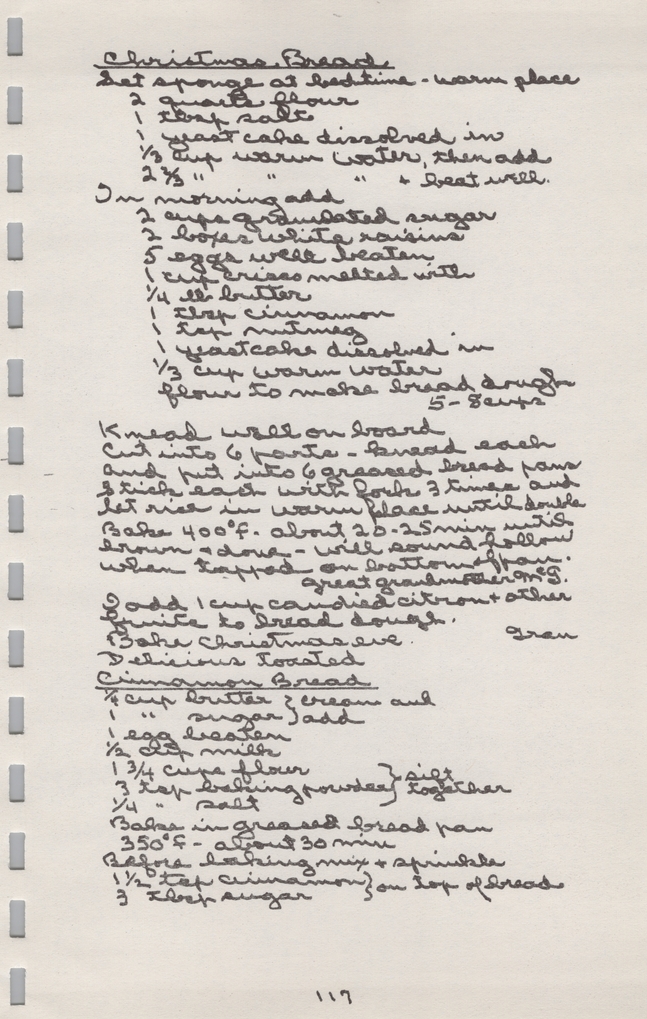 Christmas Bread
Set sponge at bedtime - warm place
2 quarts flour
1 tbsp salt
1 yeast cake dissolved in
1/3 cup warm water, then add
2 2/3 " " " + beat well.
In morning add
2 cups granulated sugar
2 boxes white raisins
5 eggs well beaten
1 cup crisco melted with
1/4 lb butter
1 tbsp cinnamon
1 tsp nutmeg
1 yeastcake dissolved in
1/3 cup warm water
flour to make bread dough
5-8 cups
Knead well on board
Cut into 6 parts - knead each
and put into 6 greased bread pans
Stick each with fork 3 times and
let rise in warm place until double
Bake 400°f. about 20-25 min until
brown + done - will sound hollow
when tapped on bottom of pan.
great grandmother McG.
I add 1 cup candied citron + other
fruits to bread dough.
Bake Christmas eve. Gran
Delicious toasted
Cinnamon Bread
1/4 cup butter } cream and
1 " sugar } add
1 egg beaten
1/2 cup milk
1 3/4 cups flour } sift
3 tsp baking powder } together
1/4 " salt
Bake in greased bread pan
350°f - about 30 min
Before baking mix + sprinkle
1 1/2 tsp cinnamon } on top of bread
3 tbsp sugar
117